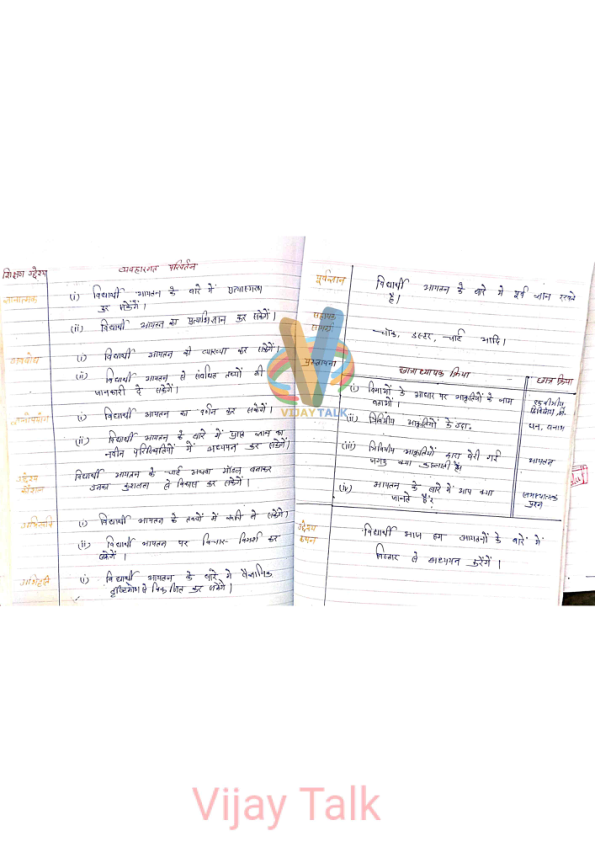 शिक्षण उद्देश्य व्यवहारगत परिवर्तन
ज्ञानात्मक (i) विद्यार्थी आयतन के बारे में प्रत्यास्मरण
कर सकेंगे।
(ii) विद्यार्थी आयतन का प्रत्यभिज्ञान कर सकेंगे।
अवबोध (i) विद्यार्थी आयतन की व्याख्या कर सकेंगे।
(ii) विद्यार्थी आयतन से संबंधित तथ्यों की
जानकारी दे सकेंगे।
(i) विद्यार्थी आयतन का वर्णन कर सकेंगे।
(ii) विद्यार्थी आयतन के बारे में प्राप्त ज्ञान का
नवीन परिस्थितियों में अध्ययन कर सकेंगे।
विद्यार्थी आयतन के चार्ट अथवा मॉडल बनाकर
उनका कुशलता से विकास कर सकेंगे।
कौशल
अभिरुचि (i) विद्यार्थी आयतन के तथ्यों में रुचि ले सकेंगे।
(ii) विद्यार्थी आयतन पर विचार-विमर्श कर
सकेंगे।
(i) विद्यार्थी आयतन के बारे में वैज्ञानिक
दृष्टिकोण से विकसित कर सकेंगे।
पूर्वज्ञान विद्यार्थी आयतन के बारे में पूर्व ज्ञान रखते
हैं।
सहायक
सामग्री चॉक, डस्टर, चार्ट आदि।
प्रस्तावना
छात्राध्यापक क्रिया छात्र क्रिया
(i) विमाओं के आधार पर आकृतियों के नाम
बताओ। एकविमीय,
(ii) त्रिविमीय आकृतियों के उदा. घन, घनाभ
(iii) त्रिविमीय आकृतियों द्वारा घेरी गई
जगह क्या कहलाती है। आयतन
(iv) आयतन के बारे में आप क्या
जानते हैं? समस्यात्मक
प्रश्न
उद्देश्य
कथन विद्यार्थी आज हम आयतनों के बारे में
विस्तार से अध्ययन करेंगे।
VIJAY TALK
Vijay Talk